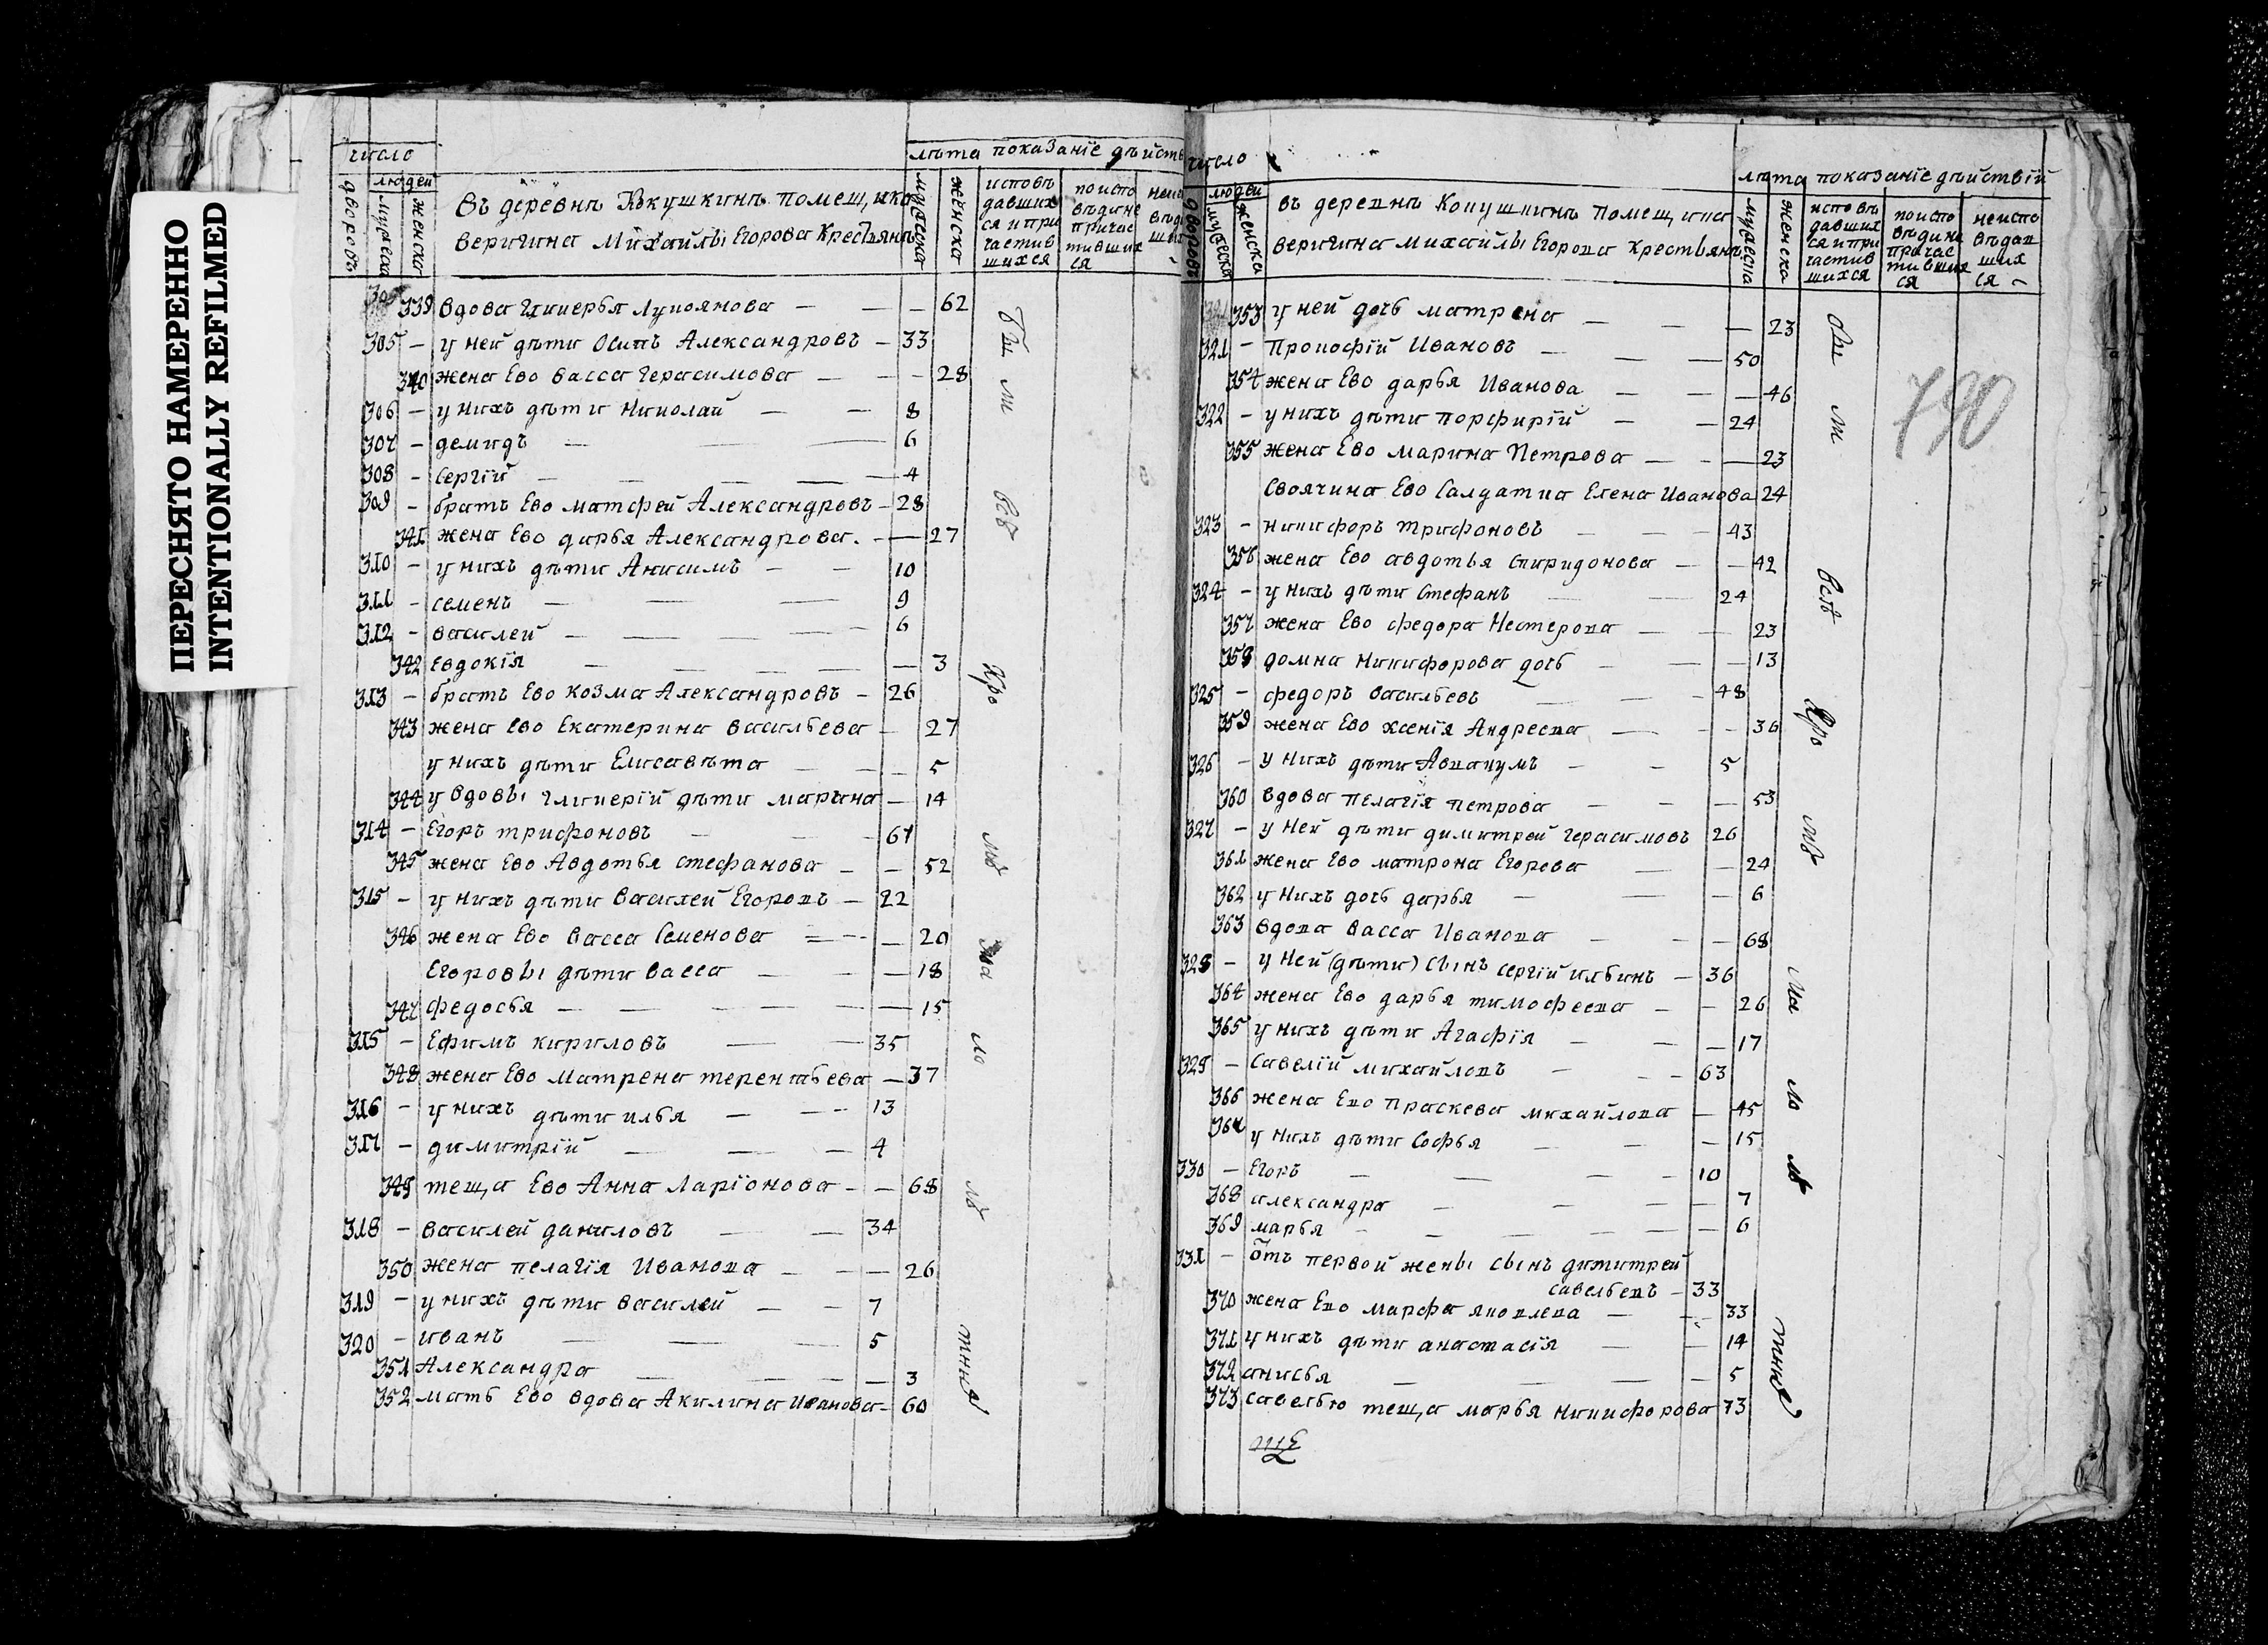 ПЕРЕСНЯТО НАМЕРЕННО
INTENTIONALLY REFILMED
число
людей
дворовъ
мужеска
женска
въ деревнѣ Кокушкинѣ помещика
веригина Михайлы Егорова Крестьянъ
лѣта показанїе дѣйств
мужеска
женска
исповѣ
давших
ся и при
частив
шихся
по испо
вѣди не
причас
тивших
ся
339 вдова Гликерья Лукоянова — 62
305 — у ней дѣти Осипъ Александровъ — 33
340 жена Ево васса Герасимова — 28
306 — у нихъ дѣти Николай — 8
307 — демидъ — 6
308 — Сергїй — 4
309 — братъ Ево матфей Александровъ — 28
341 жена Ево дарья Александрова. — 27
310 — у нихъ дѣти Анисимъ — 10
311 — семенъ — 9
312 — василей — 6
342 Евдокїя — 3
313 — братъ Ево козма Александровъ — 26
343 жена ево Екатерина васильева — 27
у нихъ дѣти Елисавѣта — 5
344 у вдовы Гликерїи дѣти марина — 14
314 — Егоръ трифоновъ — 67
345 жена Ево Авдотья стефанова — 52
315 — у нихъ дѣти василей Егоровъ — 22
346 жена Ево васса Семенова — 20
Егоровы дѣти васса — 18
347 федосья — 15
315 — Ефимъ кириловъ — 35
348 жена Ево Матрена терентьева — 37
316 — у нихъ дѣти илья — 13
317 — димитрїй — 4
349 теща Ево Анна Ларїонова — 68
318 — василей даниловъ — 34
350 жена пелагїя Иванова — 26
319 — у нихъ дѣти василей — 7
320 — иванъ — 5
351 Александра — 3
352 мать Ево вдова Акилина Иванова — 60
число
людей
дворовъ
мужеска
женска
въ деревнѣ Кокушкинѣ помещика
веригина михайлы Егорова крестьянъ
лѣта показанїе дѣйствїй
мужеска
женска
исповѣ
давших
ся и при
частив
шихся
по испо
вѣди не
причас
тивших
ся
не испо
вѣдав
ших
ся
353 у ней дочь матрена — 23
321 — Прокофїй Ивановъ — 50
354 жена Ево дарья Иванова — 46
322 — у нихъ дѣти порфирїй — 24
355 жена Ево марина Петрова — 23
Своячина Ево Салдатка Елена Иванова 24
323 — никифоръ трифоновъ — 43
356 жена Ево авдотья спиридонова — 42
324 — у нихъ дѣти стефанъ — 24
357 жена Ево федора Нестерова — 23
358 домна никифорова дочь — 13
325 — федоръ васильевъ — 48
359 жена Ево ксенїя Андреева — 36
326 — у нихъ дѣти Авакумъ — 5
360 вдова пелагїя петрова — 53
327 — у ней дѣти димитрей герасимовъ 26
361 жена Ево матрона Егорова — 24
362 у нихъ дочь дарья — 6
363 вдова васса Иванова — 68
328 — у ней (дѣти) сынъ сергїй ильинъ — 36
364 жена Ево дарья тимофеева — 26
365 у нихъ дѣти Агафїя — 17
329 — Савелїй михайловъ — 63
366 жена Ево праскева михайлова — 45
367 у нихъ дѣти Софья — 15
330 — Егоръ — 10
368 александра — 7
369 марья — 6
331 — отъ первой жены сынъ димитрей
савельевъ — 33
370 жена Ево марфа яковлева — 33
371 у нихъ дѣти анастасїя — 14
372 анисья — 5
373 савелью теща марья никифорова 73
790